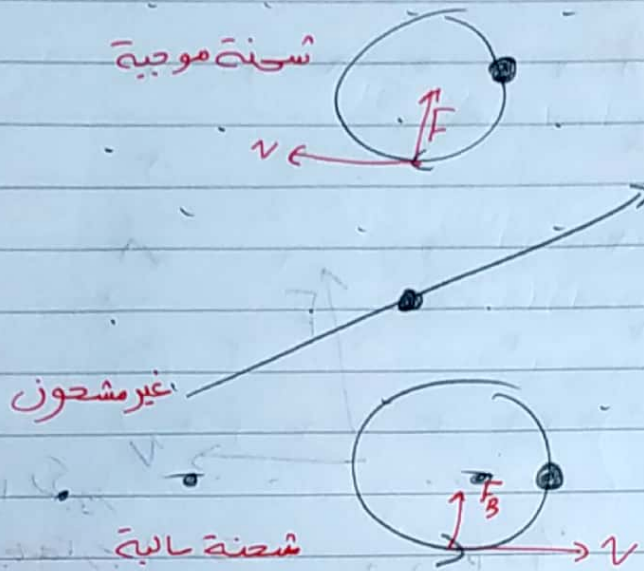 شحنة موجبة
F
v
غير مشحون
F_B
شحنة سالبة
v